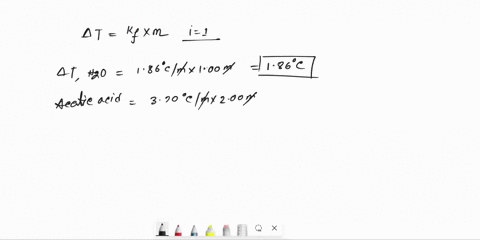 ΔT = Kf × m   i = 1
ΔT, H2O = 1.86°C/m × 1.00 m = 1.86°C
Acetic acid = 3.90°C/m × 2.00 m